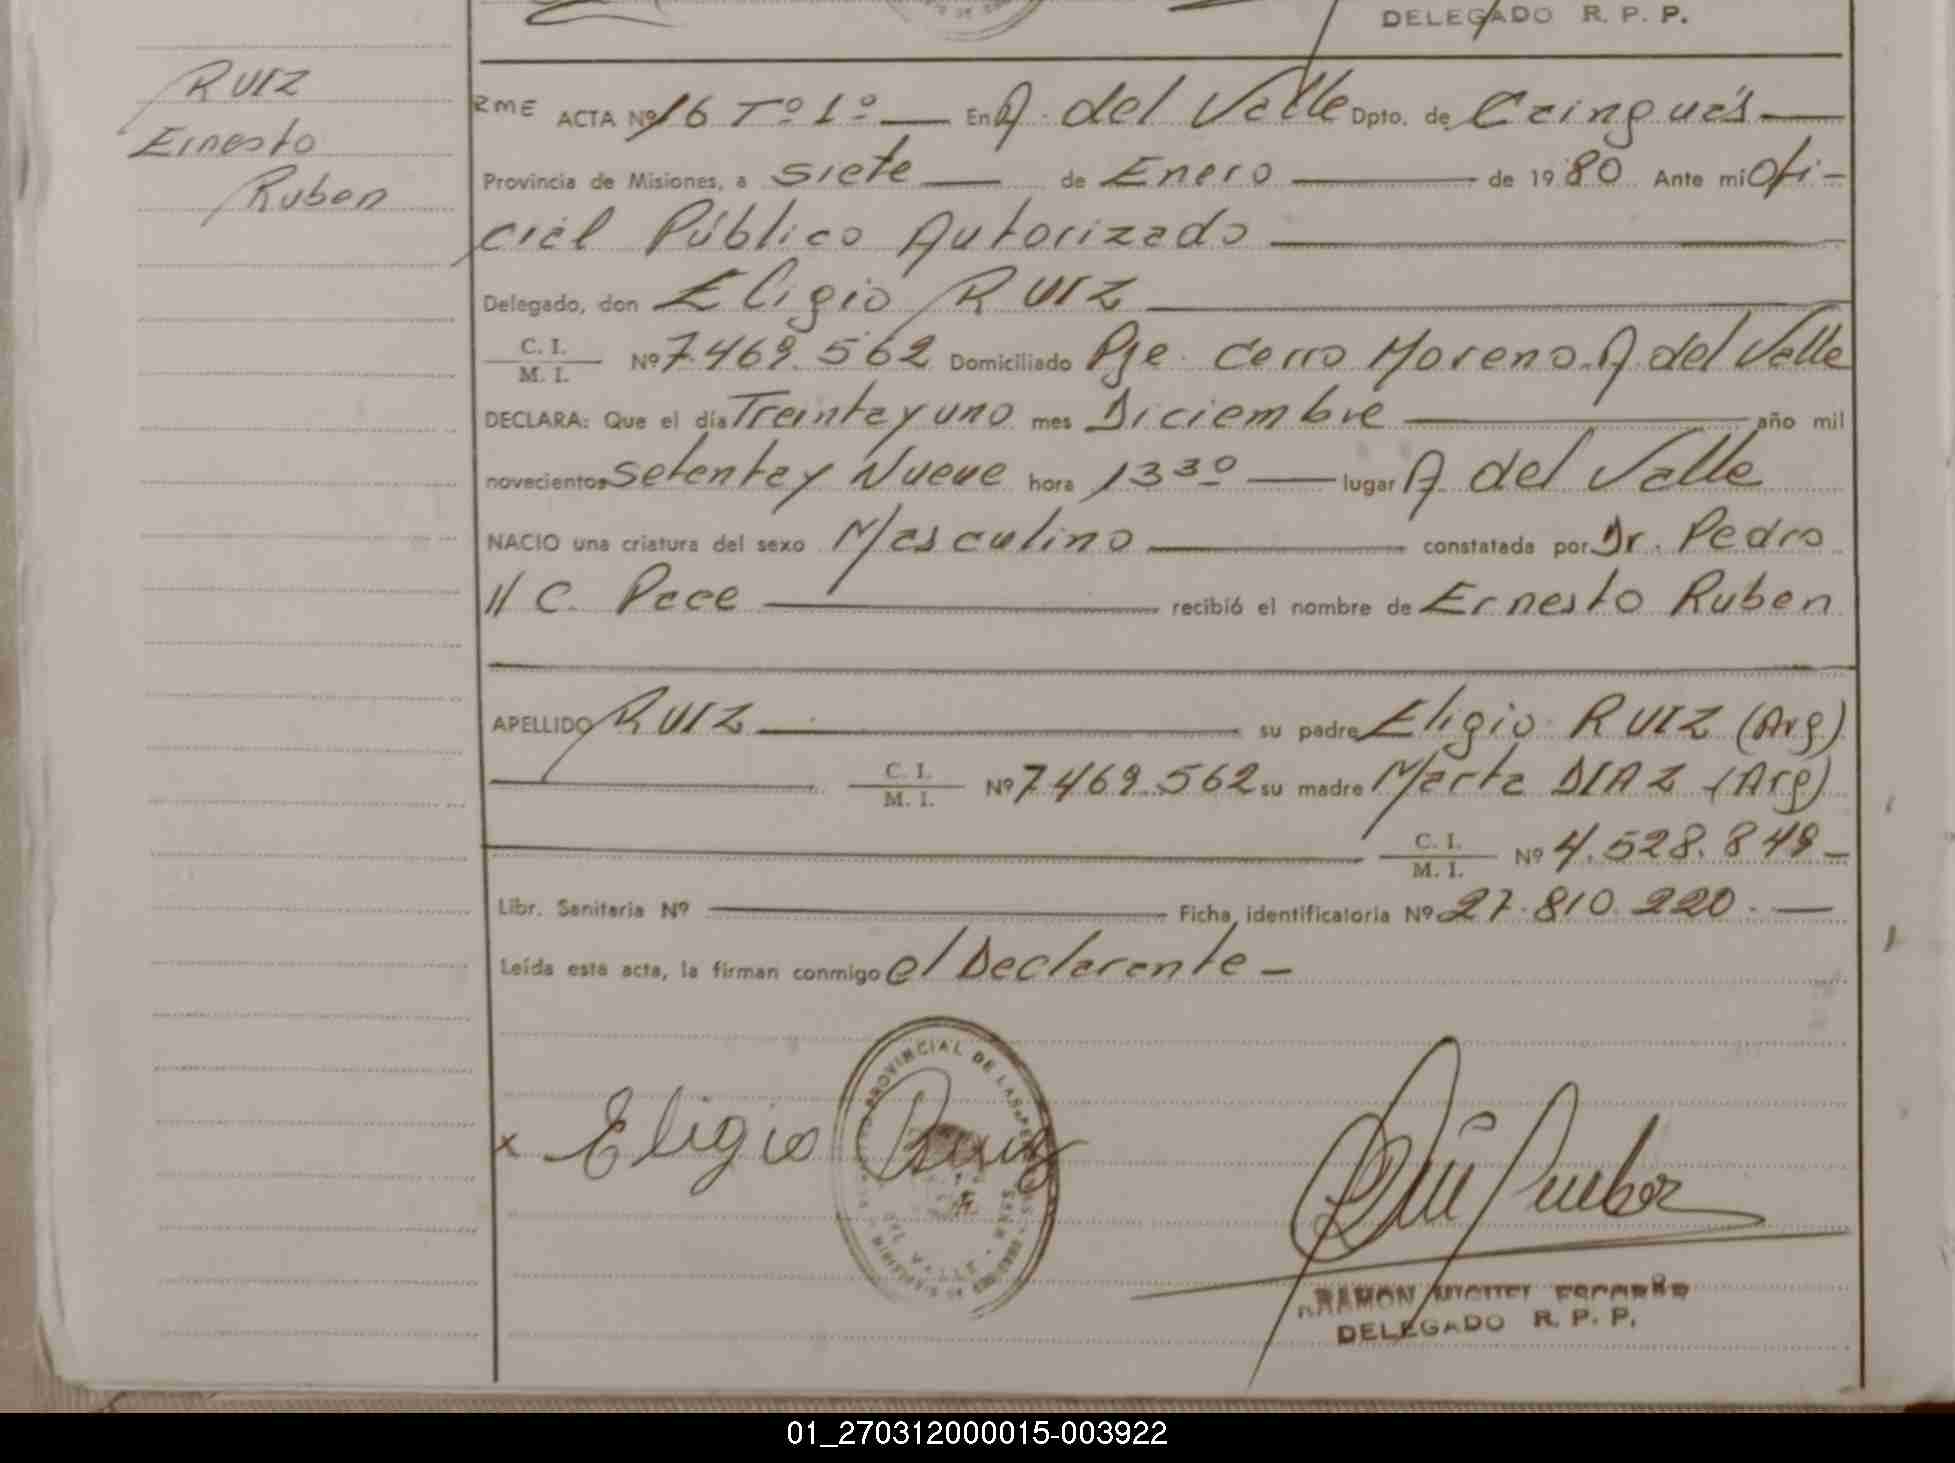 DELEGADO R. P. P.
RUIZ
Ernesto
Ruben
RME ACTA Nº 16 Tº 1º — En A. del Valle Dpto. de Cainguás —
Provincia de Misiones, a siete — de Enero — de 1980 Ante mi Ofi-
cial Público Autorizado —
Delegado, don Eligio RUIZ —
C. I.
M. I.
Nº 7.469.562 Domiciliado Pje. Cerro Moreno. A. del Valle
DECLARA: Que el día Treinta y uno mes Diciembre — año mil
novecientos Setenta y Nueve hora 13 3º — lugar A. del Valle
NACIO una criatura del sexo Masculino — constatada por Dr. Pedro
// C. Pace — recibió el nombre de Ernesto Ruben
APELLIDO RUIZ — su padre Eligio RUIZ (Arg)
— C. I.
M. I.
Nº 7.469.562 su madre Marta DIAZ (Arg)
— C. I.
M. I.
Nº 4.528.849 —
Libr. Sanitaria Nº — Ficha identificatoria Nº 27.810.220. —
Leída esta acta, la firman conmigo el Declarante —
x Eligio Ruiz
PROVINCIAL DE LAS PE
DEL VALLE
RAMON MIGUEL ESCOBAR
DELEGADO R. P. P.
01_270312000015-003922